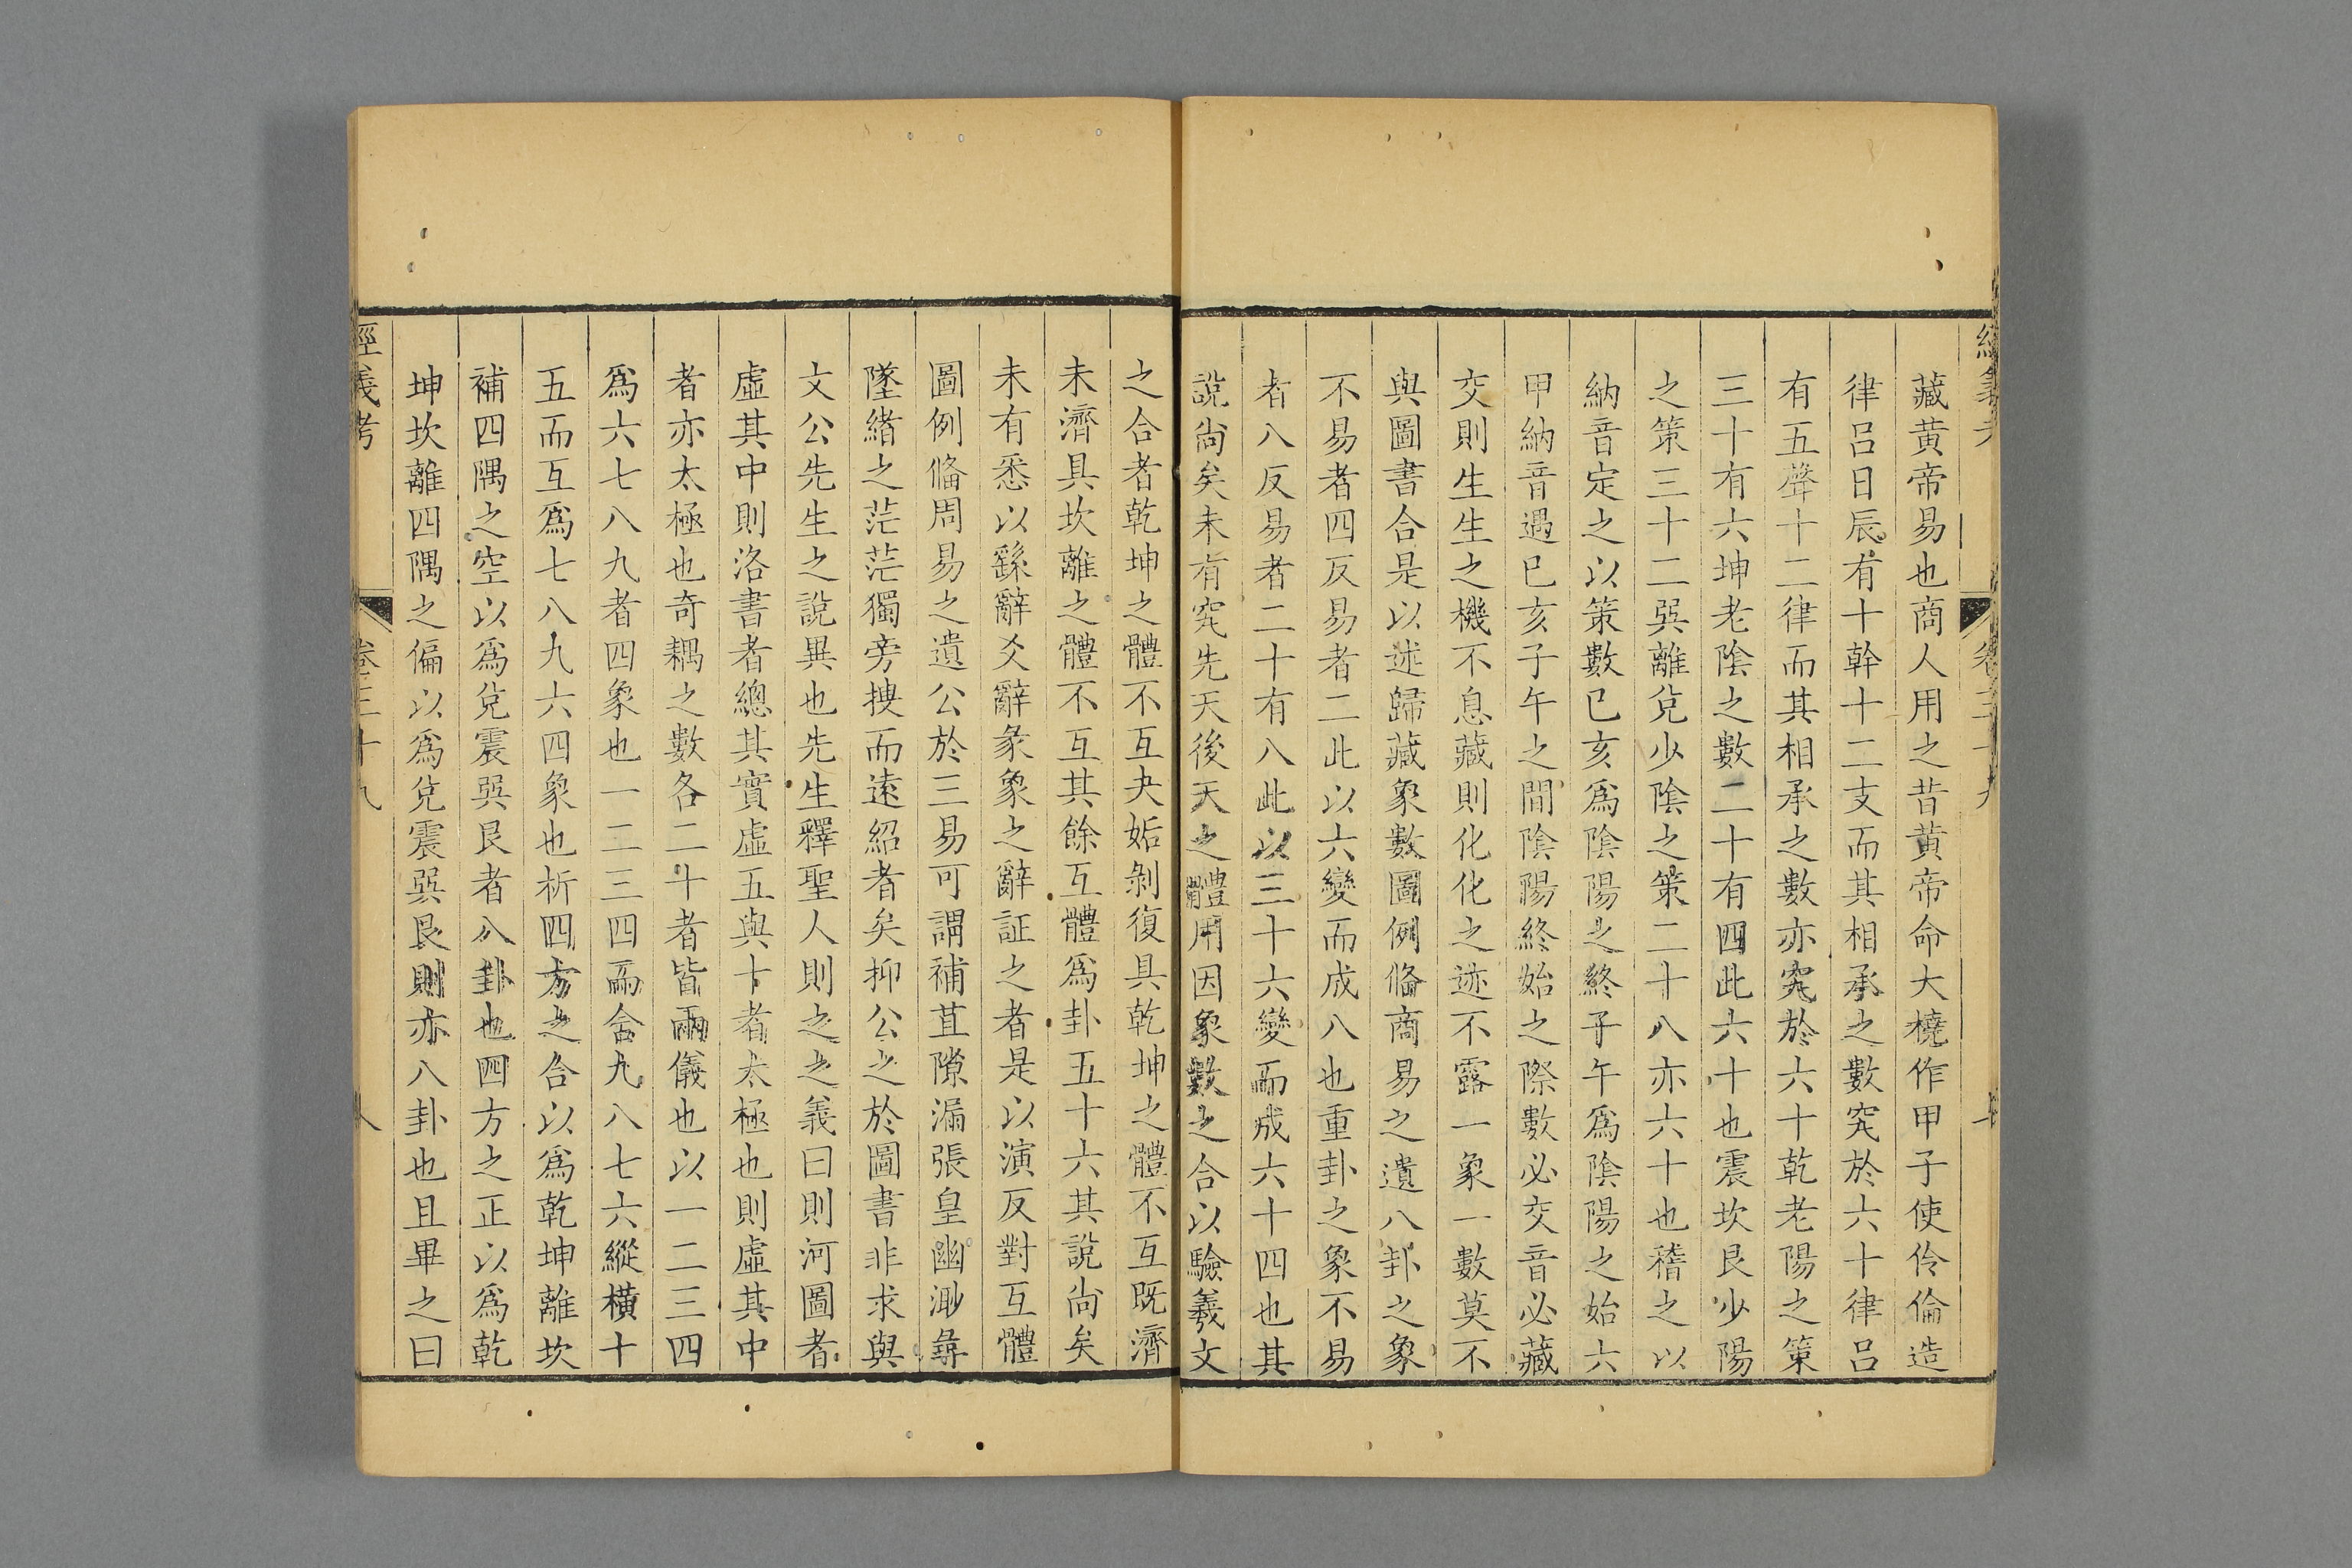 藏黄帝易也商人用之昔黄帝命大橈作甲子使伶倫造
律呂日辰有十幹十二支而其相承之數究於六十律呂
有五聲十二律而其相承之數亦究於六十乾老陽之策
三十有六坤老陰之數二十有四此六十也震坎艮少陽
之策三十二巽離兌少陰之策二十八亦六十也稽之以
納音定之以策數巳亥爲陰陽之終子午爲陰陽之始六
甲納音遇巳亥子午之間陰陽終始之際數必交音必藏
交則生生之機不息藏則化化之迹不露一象一數莫不
與圖書合是以述歸藏象數圖例俻商易之遺八卦之象
不易者四反易者二此以六變而成八也重卦之象不易
者八反易者二十有八此以三十六變而成六十四也其
說尙矣未有究先天後天之體用因象數之合以驗羲文
之合者乾坤之體不互夬姤剝復具乾坤之體不互既濟
未濟具坎離之體不互其餘互體爲卦五十六其說尙矣
未有悉以繇辭爻辭彖象之辭証之者是以演反對互體
圖例俻周易之遺公於三易可謂補苴隙漏張皇幽渺尋
墜緒之茫茫獨旁捜而遠紹者矣抑公之於圖書非求與
文公先生之說異也先生釋聖人則之之義曰則河圖者
虛其中則洛書者總其實虛五與十者太極也則虛其中
者亦太極也奇耦之數各二十者皆兩儀也以一二三四
爲六七八九者四象也一二三四而含九八七六縱橫十
五而互爲七八九六四象也析四方之合以爲乾坤離坎
補四隅之空以爲兌震巽艮者八卦也四方之正以爲乾
坤坎離四隅之偏以爲兌震巽艮則亦八卦也且畢之曰
經義考
卷三十九
八